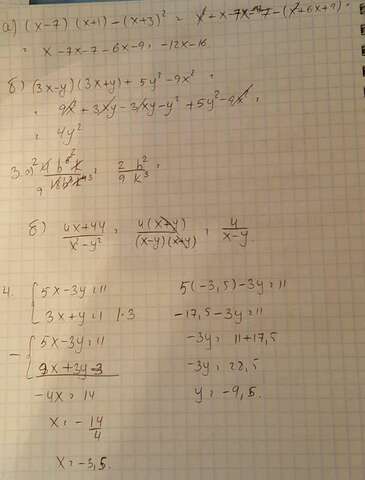 а) (x-7)(x+1)-(x+3)² = x²+x-7x-7-(x²+6x+9)=
= x-7x-7-6x-9= -12x-16
б) (3x-y)(3x+y)+5y²-9x² =
= 9x²+3xy-3xy-y²+5y²-9x²=
= 4y²
4x+44 = 4(x+y) = 4
x²-y² (x-y)(x+y) x-y
4. {5x-3y=11
3x+y=1 |·3
- {5x-3y=11
9x+3y=3
-4x=14
x= -14/4
x=-3,5.
5(-3,5)-3y=11
-17,5-3y=11
-3y= 11+17,5
-3y= 28,5
y= -9,5.